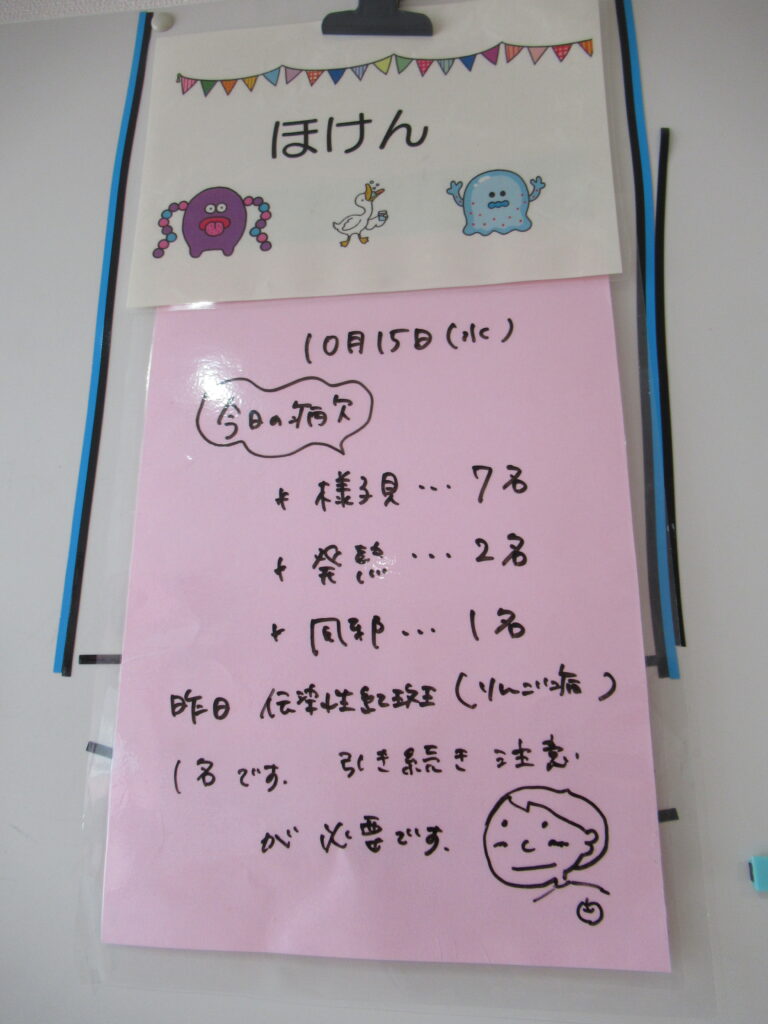 ほけん
10月15日(水)
今日の病欠
* 様子見… 7名
* 発熱… 2名
* 風邪… 1名
昨日 伝染性紅斑(りんご病)
1名です. 引き続き 注意
が 必要です.